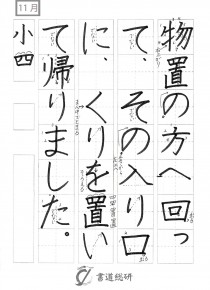 11月
物置の方へ回っ
て、その入り口
に、くりを置い
て帰りました。
小四
書道総研